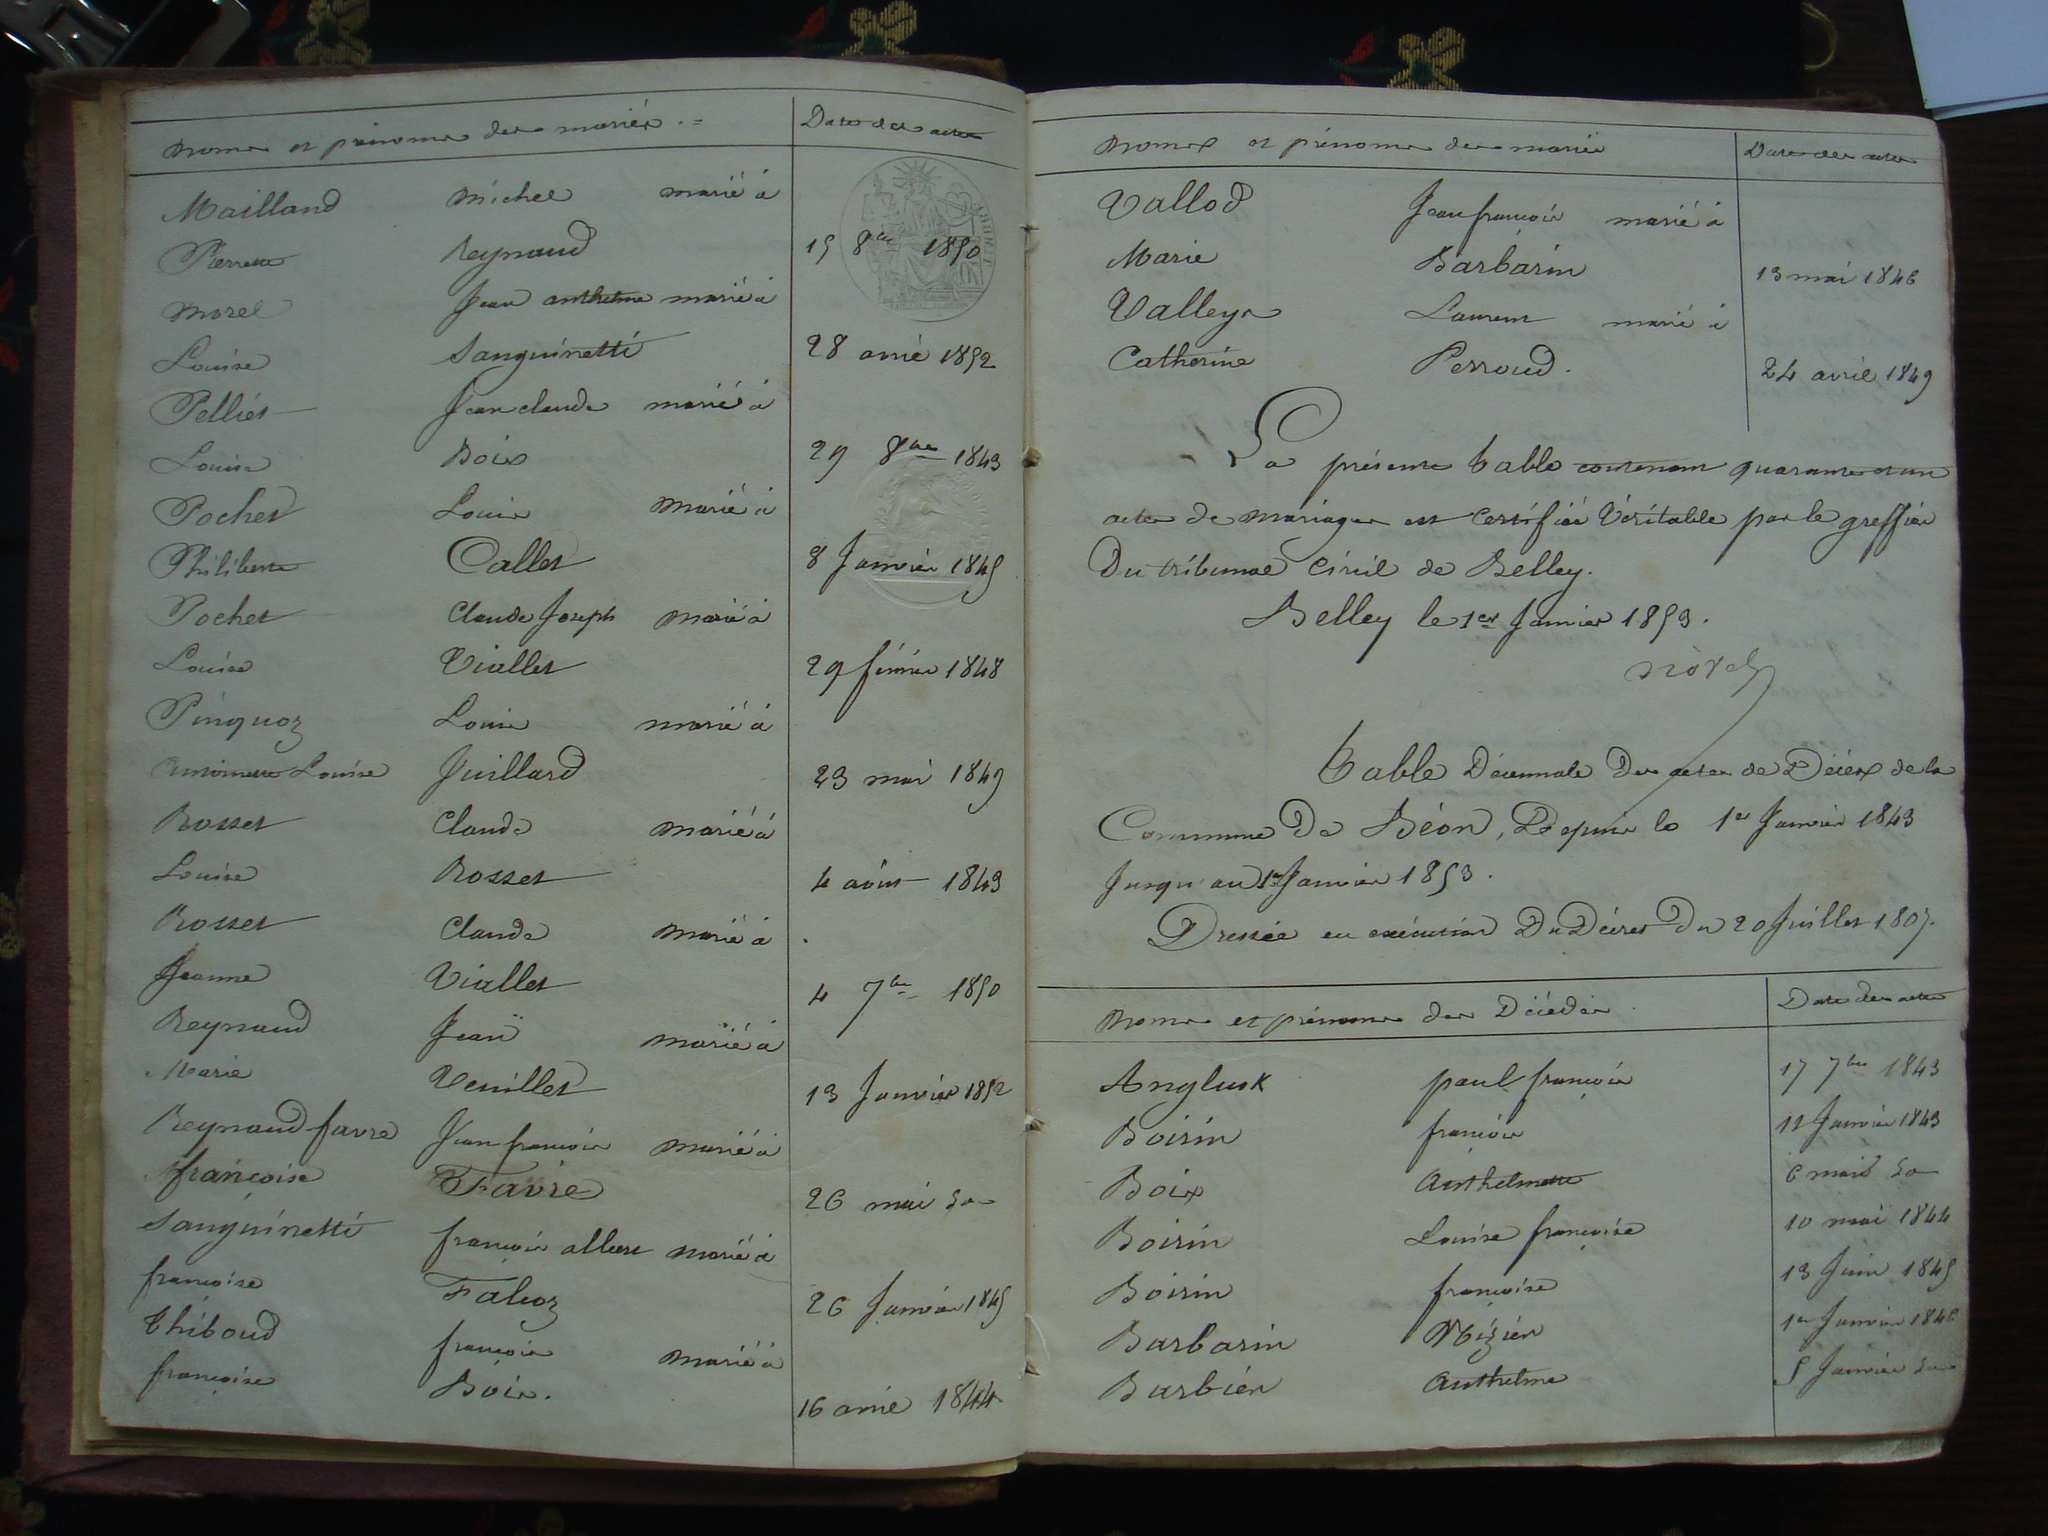 Noms et prénoms des mariés
Date des actes
Mailland Michel marié à
Pierrette Reynaud 15 8bre 1850
Morel Jean anthelme marié à
Louise Sanguinetti 28 avril 1852
Pelliet Jean claude marié à
Louise Boix 29 8bre 1843
Pochet Louis marié à
Philiberte Callet 8 Janvier 1845
Pochet Claude Joseph marié à
Louise Viallet 29 février 1848
Pinquoz Louis marié à
Antoinette Louise Juillard 23 mai 1849
Rosset Claude marié à
Louise Rosset 4 août 1843
Rosset Claude marié à
Jeanne Viallet 4 7bre 1850
Reynaud Jean marié à
Marie Veuillet 13 Janvier 1852
Reynaud favre Jean françois marié à
françoise Favre 26 mai do
Sanguinetti françois albert marié à
françoise Falcoz 26 Janvier 1845
Thiboud françois marié à
françoise Boix. 16 avril 1844
Noms et prénoms des mariés
Date des actes
Vallod Jean françois marié à
Marie Barbarin 13 mai 1846
Valleys Laurent marié à
Catherine Perroud. 24 avril 1849
La présente table contenant quarante et un
actes de mariages est certifiée Véritable par le greffier
Du tribunal Civil de Belley.
Belley le 1er Janvier 1853.
Table Décennale Des actes de Décès de la
Commune De Béon, Depuis le 1er Janvier 1843
Jusqu'au 1er Janvier 1853.
Dressée en exécution Du Décret Du 20 Juillet 1807.
Noms et prénoms des Décédés
Date des actes
Paul françois 17 7bre 1843
Boirin françois 12 Janvier 1843
Boix Anthelmette 6 mai do
Boirin Louise françoise 10 mai 1844
Boirin françoise 13 Juin 1845
Barbarin 1er Janvier 1846
Barbier Anthelme 5 Janvier do